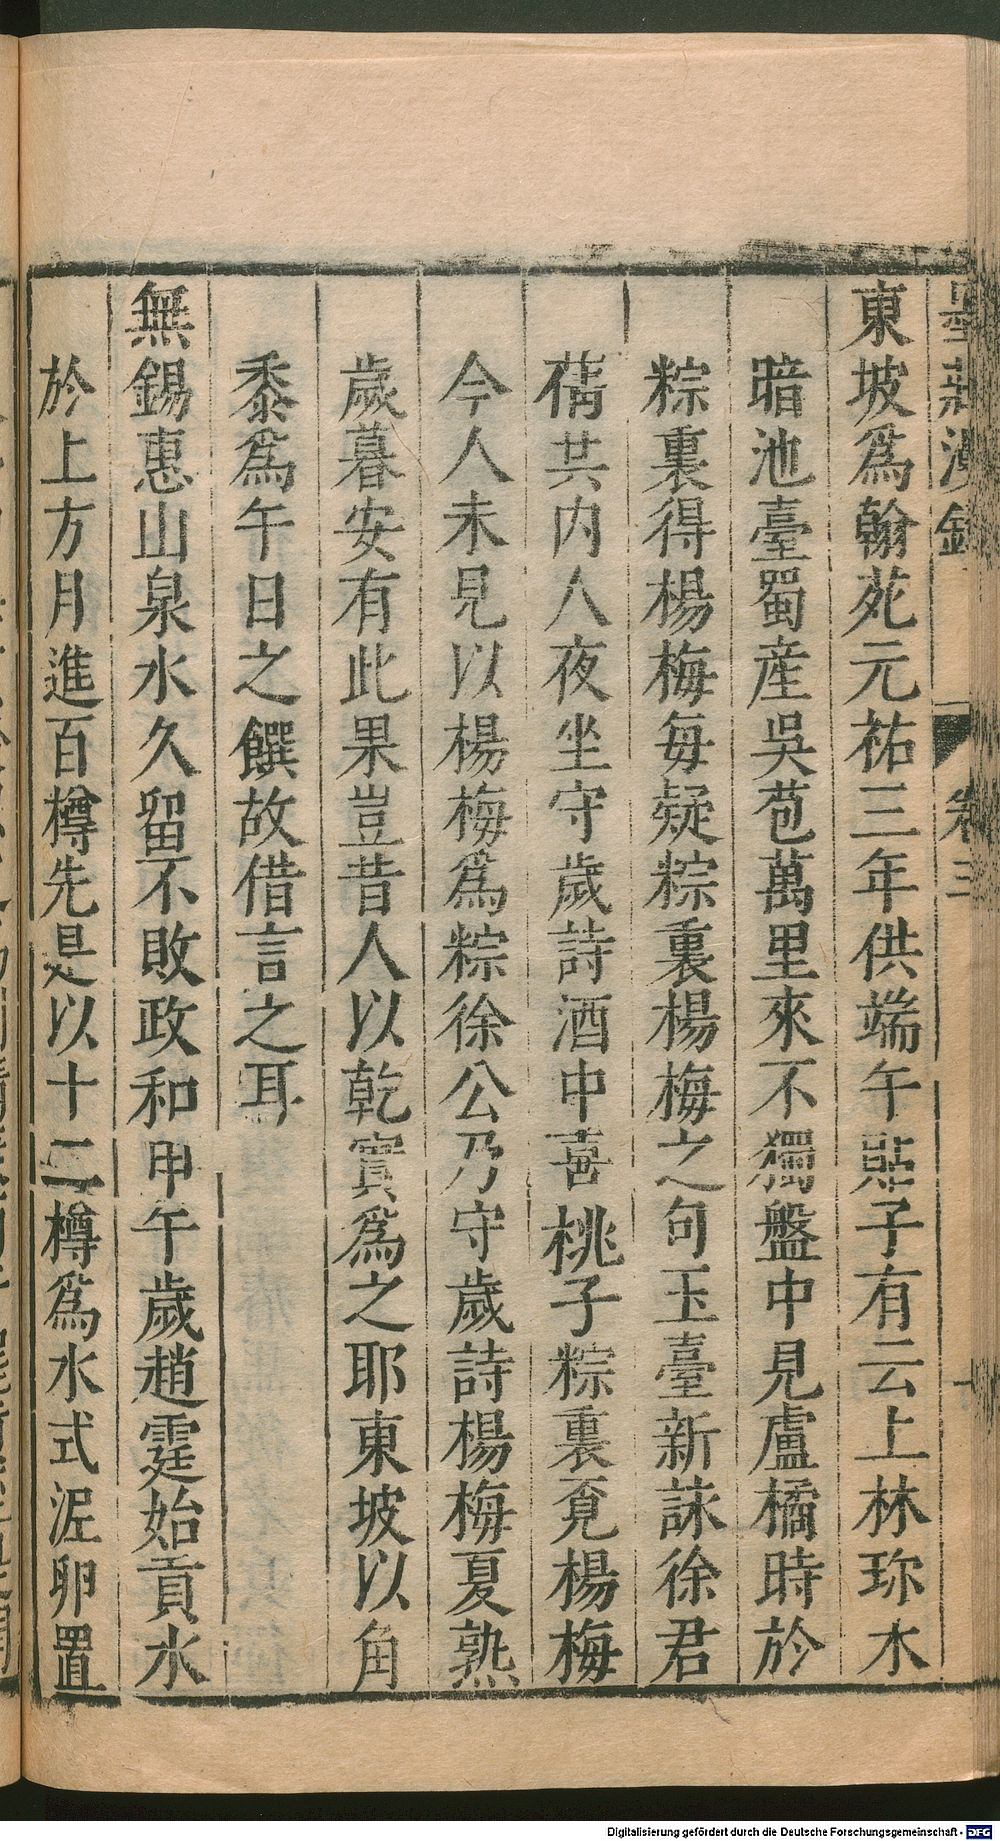 墨莊漫錄
卷三
東坡爲翰苑元祐三年供端午貼子有云上林珎木
暗池臺蜀産吳苞萬里來不獨盤中見盧橘時於
粽裏得楊梅每疑粽裏楊梅之句玉臺新詠徐君
蒨共内人夜坐守歲詩酒中喜桃子粽裏覓楊梅
今人未見以楊梅爲粽徐公乃守歲詩楊梅夏熟
歲暮安有此果豈昔人以乾實爲之耶東坡以角
黍爲午日之饌故借言之耳
無錫惠山泉水久留不敗政和甲午歲趙霆始貢水
於上方月進百樽先是以十二樽爲水式泥卵置
Digitalisierung gefördert durch die Deutsche Forschungsgemeinschaft - DFG